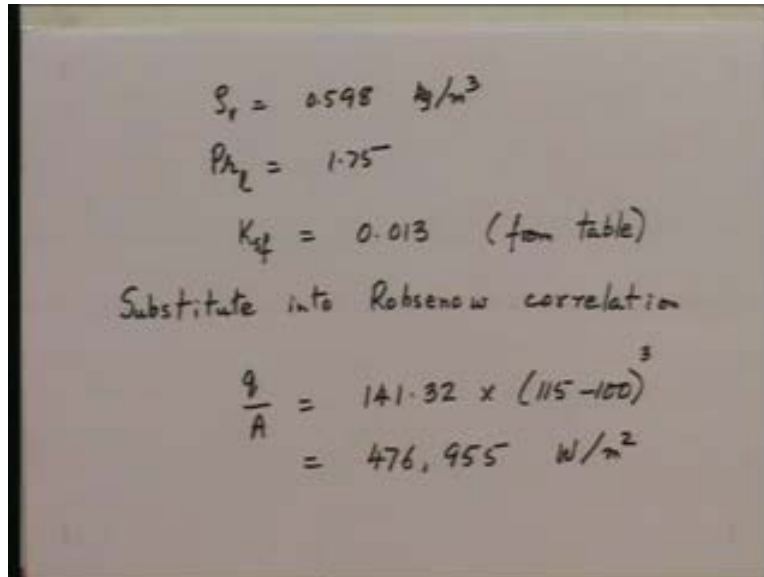 ρᵥ = 0.598 kg/m³
Pr_l = 1.75
K_sf = 0.013 (from table)
Substitute into Robsenow correlation
q/A = 141.32 x (115-100)³
= 476,955 W/m²